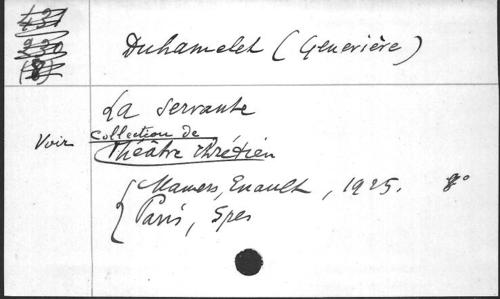 Duhamelet (Geneviève)
La servante
Voir collection de
Théâtre chrétien
Mamers, Enault, 1925. 8°
Paris, Spes